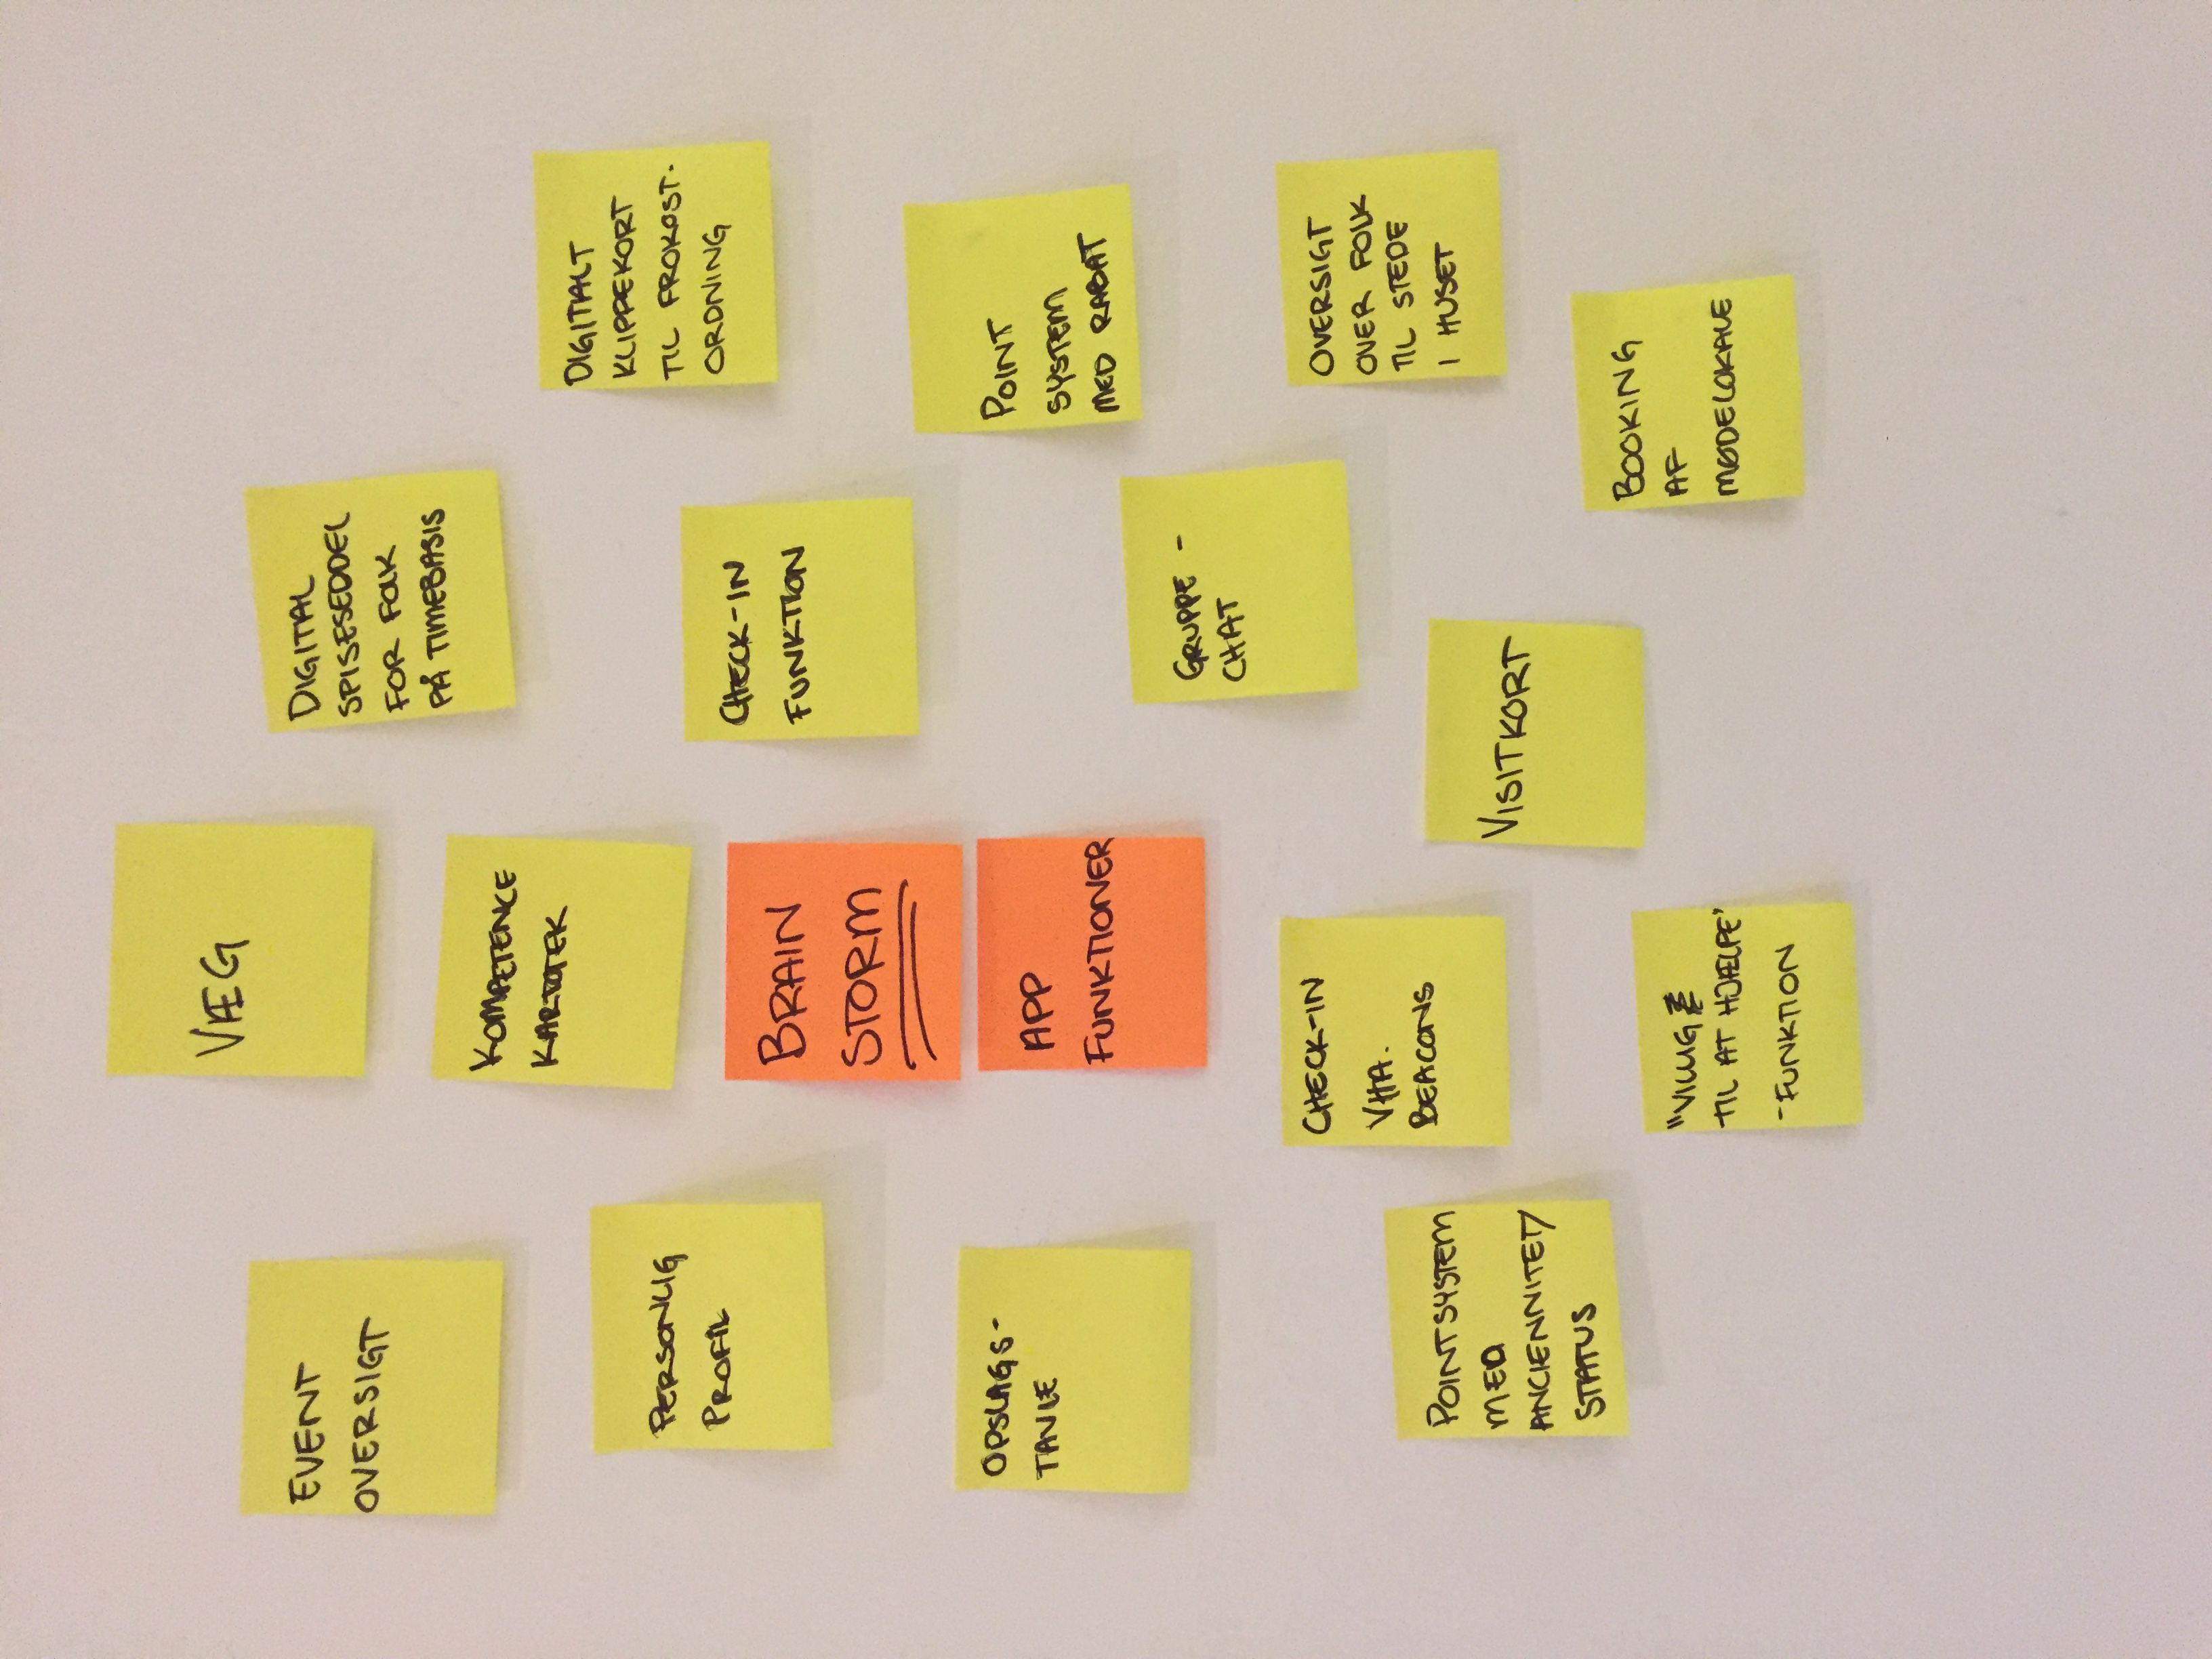 VÆG
EVENT
OVERSIGT
DIGITAL
SPISESEDDEL
FOR FOLK
PÅ TIMEBASIS
KOMPETENCE
KARTOTEK
DIGITALT
KLIPPEKORT
TIL FROKOST-
ORDNING
PERSONLIG
PROFIL
CHECK-IN
FUNKTION
BRAIN
STORM
OPSLAGS-
TAVLE
APP
FUNKTIONER
POINT
SYSTEM
MED RABAT
GRUPPE-
CHAT
CHECK-IN
VHA.
BEACONS
OVERSIGT
OVER FOLK
TIL STEDE
I HUSET
POINTSYSTEM
MED
ANCIENNITET/
STATUS
VISITKORT
BOOKING
AF
MØDELOKALE
"VILLIG
TIL AT HJÆLPE"
-FUNKTION